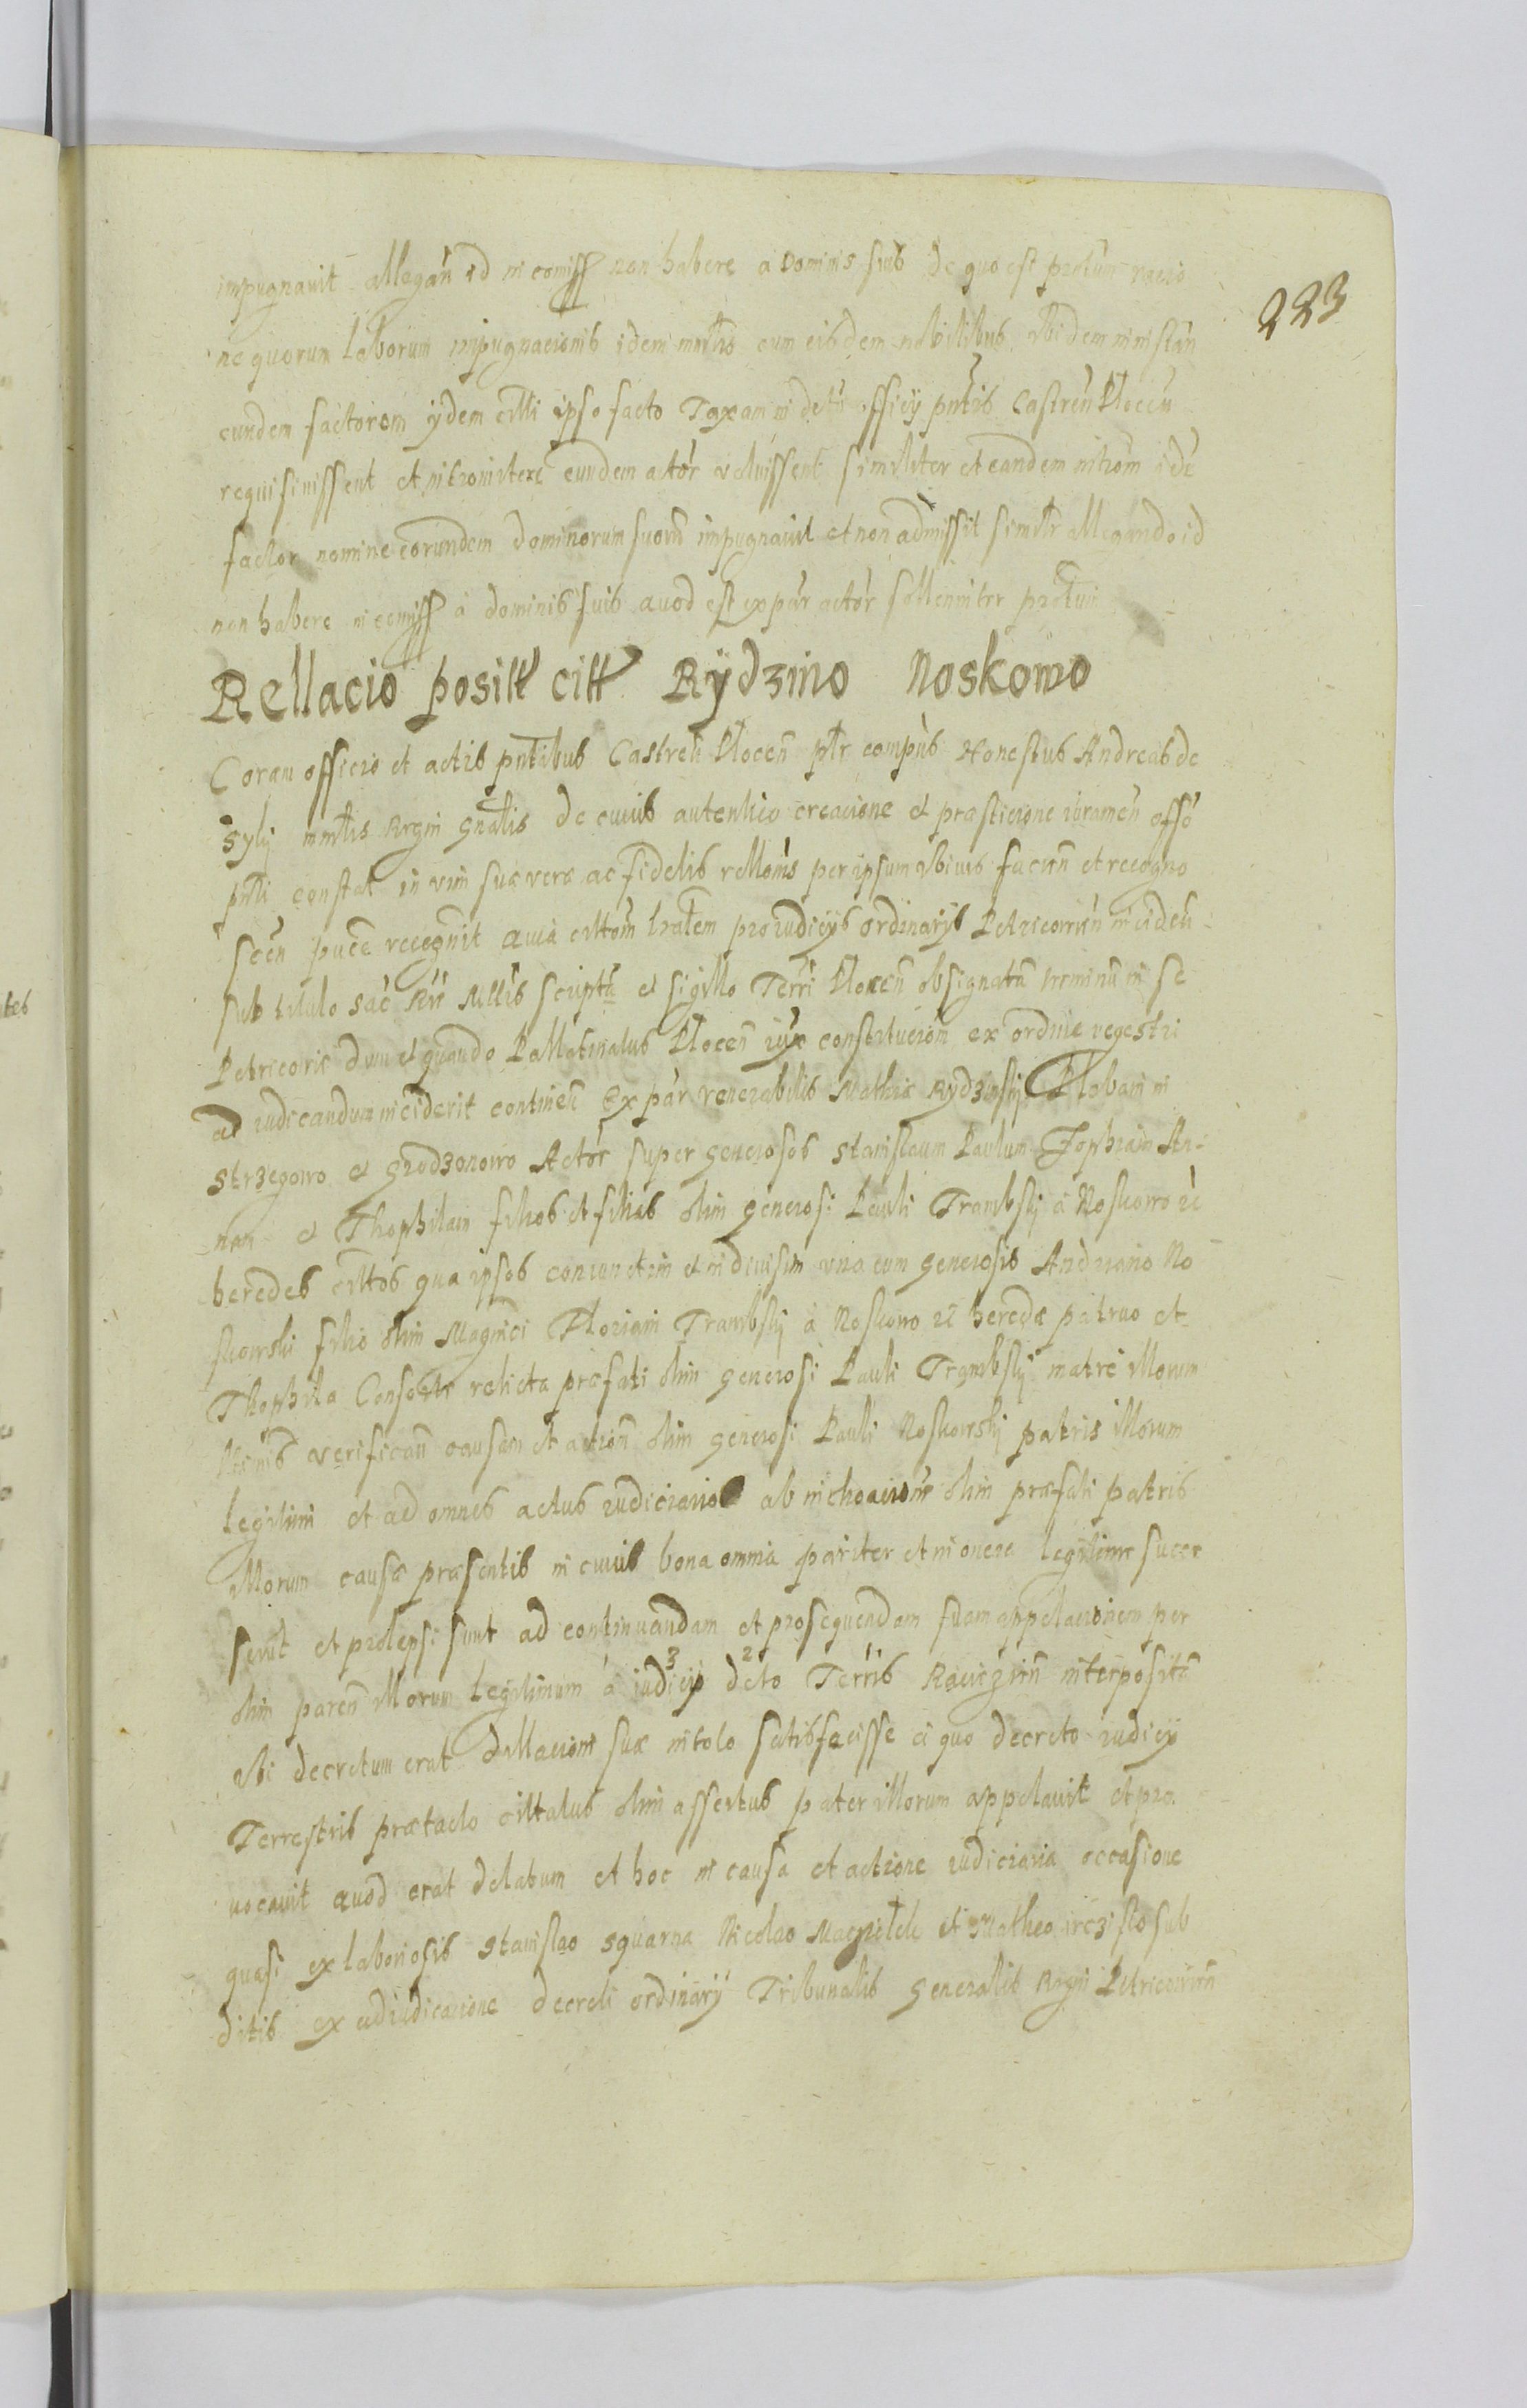 223
impugnauit allegan id in comiss non habere a Dominis suis De quo est protum racio
ne quorum laborum impugnacionis idem mnrlis cum eisdem nobilibus ibidem ministran
eundem factorem ijdem citti ipso facto Taxam officij pntis Castren Plocen
requisiuissent et intromitere eundem actor voluissent similiter et eandem introm ide
factor nomine eorundem dominorum suorum impugnauit et non admissit similr allegando id
non habere in comiss a dominis suis quod est ex par actor sollenniter protum
Rellacio posit citt Rÿdzino Noskowo
Coram officio et actis pntibus Castren Plocen ptr compns Honestus Andreas de
mnrlis Regni gnalis de cuius autentica creacione et prasticione iuramen offo
pnti constat in vim suæ veræ ac fidelis rellonis per ipsum obiuis facien et recogno
scen puce recognit Quia cittom lralem pro iudicijs ordinarijs Petricouien inciden
sub titulo Sac Rei Mttis scripta et sigillo Terri Plocen obsignata terminum in se
Petricouie dum et quando Pallatinatus Plocen iux constitucion ex ordine regestri
ad iudicandum inciderit continen Ex par venerabilis Mathiæ Rydzinskij Plebani in
Strzegowo et Grodzonowo Actor super Generosos Stanislaum Paulum Zophiam An-
nam et Thophilam filios et filias olim Generosi Pauli Trambskj a Noskowo
heredes cittos qua ipsos coniunctim et indiuisim vna cum Generosis Andreano No
skowski filio olim Magnifici Floriani Trambskj a Noskowo herede patruo et
Thophila Consorte relicta præfati olim Generosi Pauli Trambskj matre illorum
verifican causam et action olim generosi Pauli Noskowskj patris illorum
legitimi et ad omnes actus iudiciarios ab inchoacione olim præfati patris
illorum causæ præsentis in cuius bona omnia pariter et in onera legitime succes
serut et prolapsi sunt ad continuandam et prosequendam suam appelacionem per
olim paren illorum legitimum a iudicij dcto Terris Raciazien interposita
vbi decretum erat dillacioni suæ in tolo satisfecisse a quo decreto iudicij
Terrestris prætacto cittatus olim assertus pater illorum appelauit et pro
uocauit quod erat delatum et hoc in causa et actione iudiciaria occasione
quasi ex laboriosis Stanislao Sguarna Nicolao et Matheo sub
ditis ex adiudicacione decreti ordinarij Tribunalis Generalis Regni Petricouien